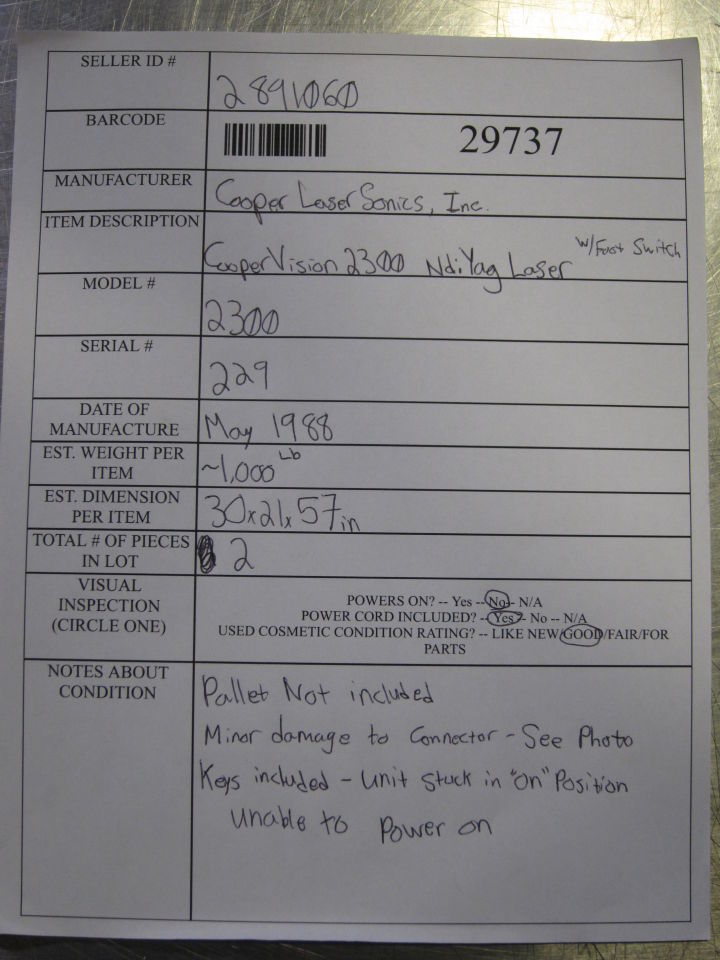 SELLER ID #
2891060
BARCODE
29737
MANUFACTURER
Cooper LaserSonics, Inc.
ITEM DESCRIPTION
CooperVision 2300 Nd:Yag Laser w/Foot Switch
MODEL #
2300
SERIAL #
229
DATE OF
MANUFACTURE
May 1988
EST. WEIGHT PER
ITEM
~1,000 Lb
EST. DIMENSION
PER ITEM
30x21x57in
TOTAL # OF PIECES
IN LOT
2
VISUAL
INSPECTION
(CIRCLE ONE)
POWERS ON? -- Yes -- No -- N/A
POWER CORD INCLUDED? -- Yes -- No -- N/A
USED COSMETIC CONDITION RATING? -- LIKE NEW/GOOD/FAIR/FOR
PARTS
NOTES ABOUT
CONDITION
Pallet Not included
Minor damage to Connector - See Photo
Keys included - Unit stuck in "on" Position
Unable to Power on